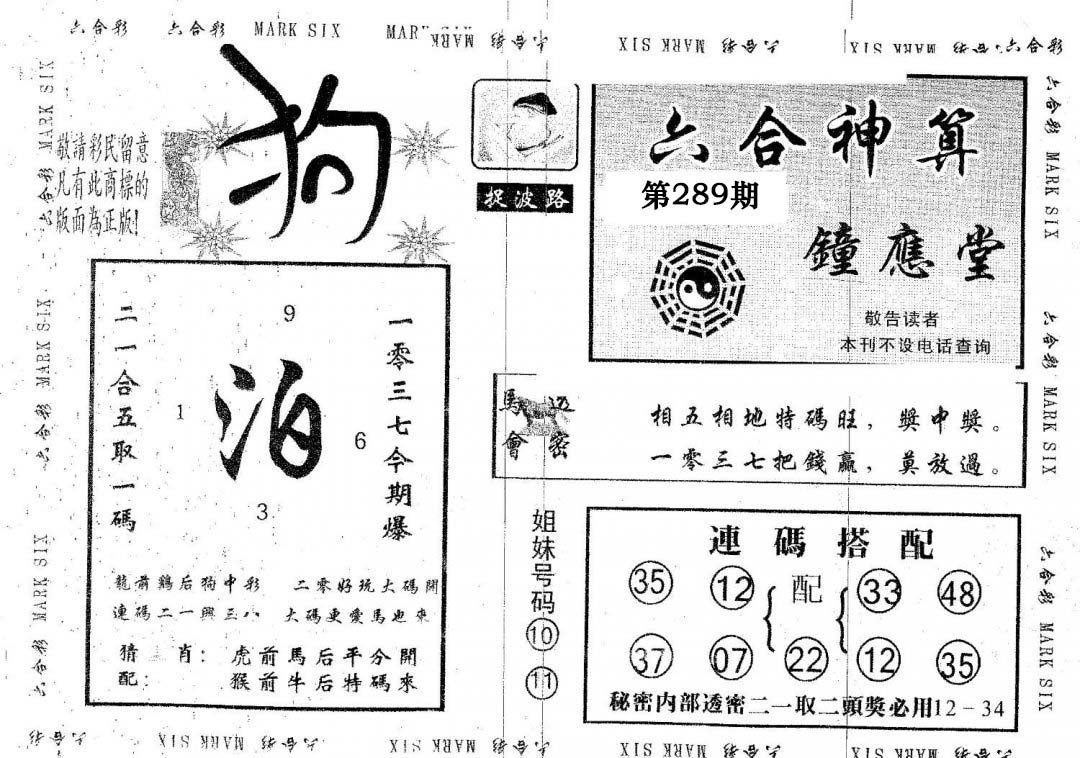 六合彩 六合彩 MARK SIX MARK SIX 六合彩 六合彩 MARK SIX 六合彩 MARK SIX 六合彩
敬請彩民留意
凡有此商標的
版面為正版!
狗
捉波路
六合神算
第289期
鐘應堂
敬告读者
本刊不设电话查询
二一合五取一碼
9
1
泊
6
3
一零三七今期爆
龍前鷄后狗中彩 二零好玩大碼開
連碼二一興三八 大碼更愛馬也來
猜肖: 虎前馬后平分開
配: 猴前牛后特碼來
馬會
密
相五相地特碼旺,獎中獎。
一零三七把錢贏,莫放過。
姐妹号码
10
11
連碼搭配
35 12 配 33 48
37 07 22 12 35
秘密内部透密二一取二頭獎必用12-34
六合彩 MARK SIX 六合彩 MARK SIX 六合彩 MARK SIX 六合彩 MARK SIX 六合彩